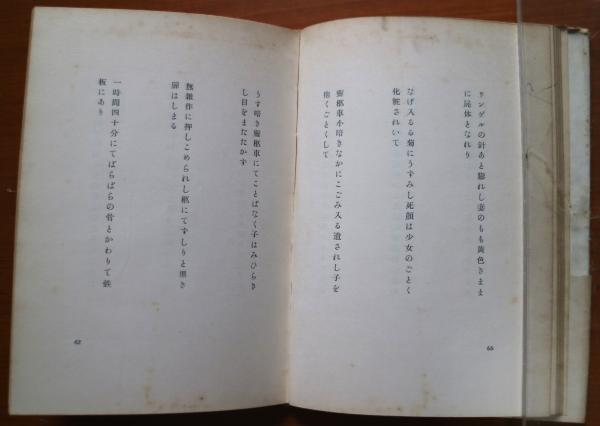 リンゲルの針あと膨れし妻のもも黄色きまま
に屍体となれり
なげ入るる菊にうずみし死顔は少女のごとく
化粧されいて
霊柩車小暗きなかにこごみ入る遺されし子を
抱くごとくして
うす暗き霊柩車にてことばなく子はみひらき
し目をまたたかす
無雑作に押しこめられし柩にてずしりと黒き
扉はしまる
一時間四十分にてばらばらの骨とかわりて鉄
板にあり